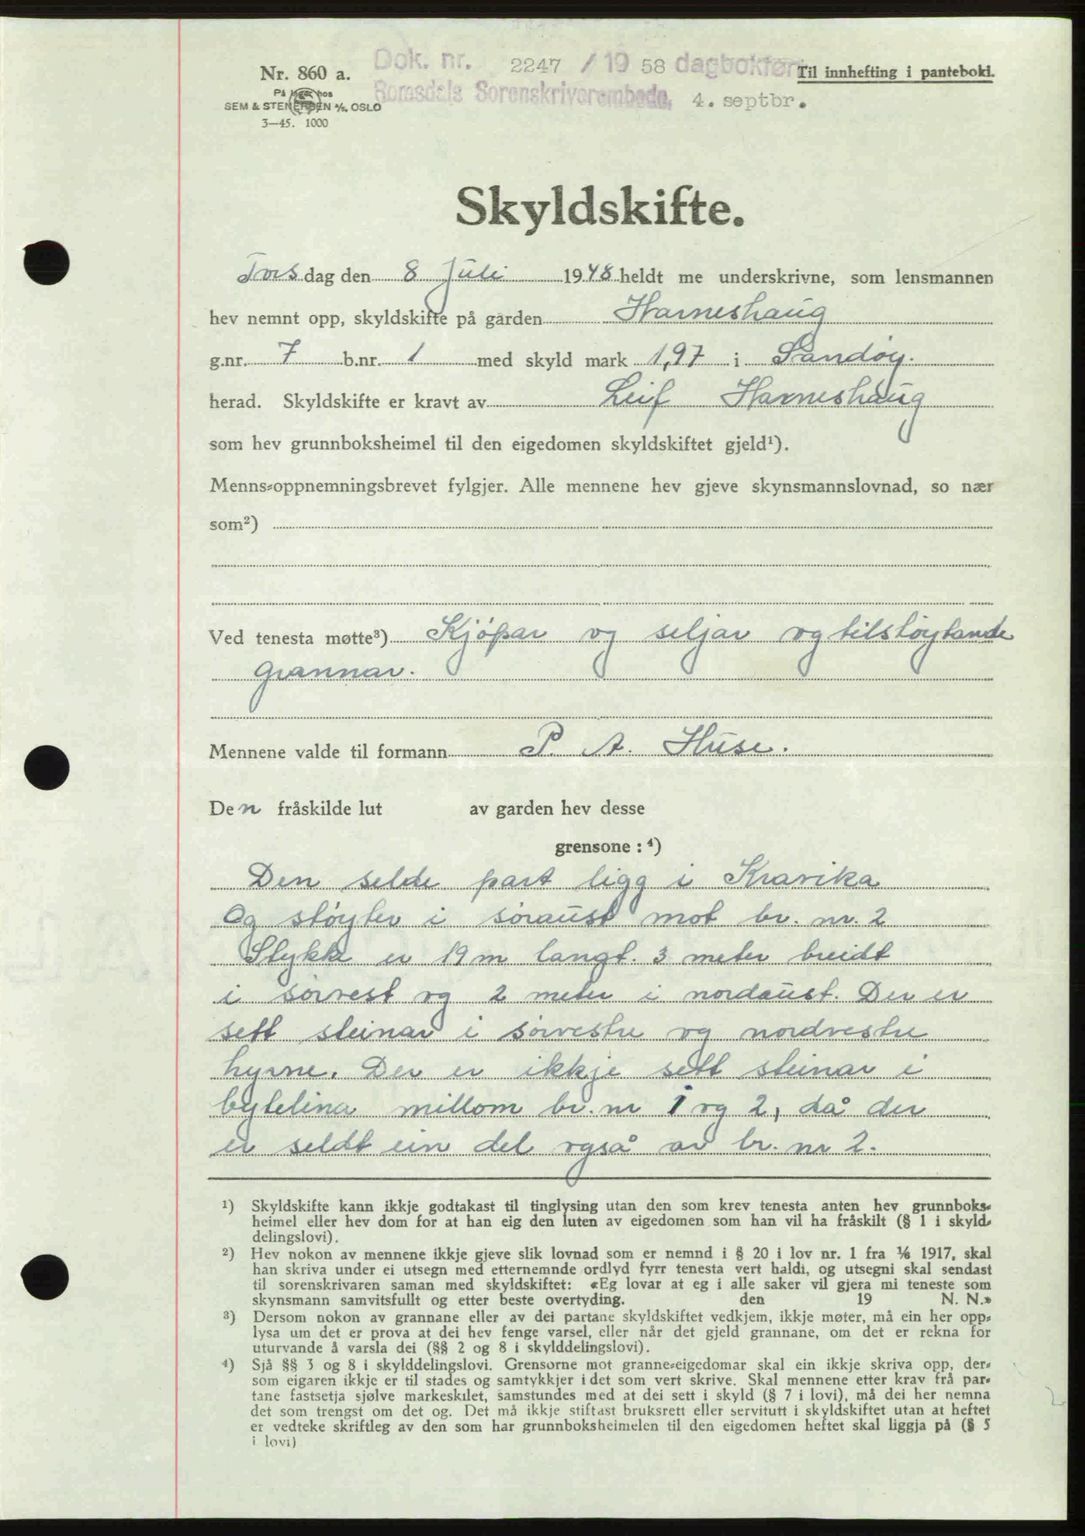 Nr. 860 a.
SEM & STENERSEN A/S, OSLO
3—45. 1000
Dok. nr. 2247 / 19 58 dagbokført
Romsdals Sorenskriverembede, 4. septbr.
Til innhefting i panteboki.
Skyldskifte.
Torsdag den 8 Juli 1948 heldt me underskrivne, som lensmannen
hev nemnt opp, skyldskifte på garden Harneshaug
g.nr. 7 b.nr. 1 med skyld mark 1,97 i Sandøy.
herad. Skyldskifte er kravt av Leif Harneshaug
som hev grunnboksheimel til den eigedomen skyldskiftet gjeld¹).
Menns-oppnemningsbrevet fylgjer. Alle mennene hev gjeve skynsmannslovnad, so nær
som²)
Ved tenesta møtte³) Kjøpar og seljar og tilstøytande
grannar.
Mennene valde til formann P. A. Huse.
Den fråskilde lut av garden hev desse
grensone : ⁴)
Den selde part ligg i Kravika
Og støyter i søraust mot br. nr. 2
Stykke er 19 m langt. 3 meter breidt
i sørvest og 2 meter i nordaust. Der er
sett steinar i sørvestre og nordvestre
hyrne. Der er ikkje sett steinar i
bytelina millom br. nr 1 og 2, då der
er seldt ein del også av br. nr 2.
¹) Skyldskifte kann ikkje godtakast til tinglysing utan den som krev tenesta anten hev grunnboks-
heimel eller hev dom for at han eig den luten av eigedomen som han vil ha fråskilt (§ 1 i skyld-
delingslovi).
²) Hev nokon av mennene ikkje gjeve slik lovnad som er nemnd i § 20 i lov nr. 1 fra 1/6 1917, skal
han skriva under ei utsegn med etternemnde ordlyd fyrr tenesta vert haldi, og utsegni skal sendast
til sorenskrivaren saman med skyldskiftet: «Eg lovar at eg i alle saker vil gjera mi teneste som
skynsmann samvitsfullt og etter beste overtyding. den 19 N. N.»
³) Dersom nokon av grannane eller av dei partane skyldskiftet vedkjem, ikkje møter, må ein her opp-
lysa um det er prova at dei hev fenge varsel, eller når det gjeld grannane, om det er rekna for
uturvande å varsla dei (§§ 2 og 8 i skylddelingslovi).
⁴) Sjå §§ 3 og 8 i skylddelingslovi. Grensorne mot granne-eigedomar skal ein ikkje skriva opp, der-
som eigaren ikkje er til stades og samtykkjer i det som vert skrive. Skal mennene etter krav frå par-
tane fastsetja sjølve markeskilet, samstundes med at dei sett i skyld (§ 7 i lovi), må dei her nemna
det som trengst om det og. Det må ikkje stiftast bruksrett eller servitutt i skyldskiftet utan at heftet
er vedteke skriftleg av den som har grunnboksheimelen til den eigedomen heftet skal liggja på (§ 5
i lovi)